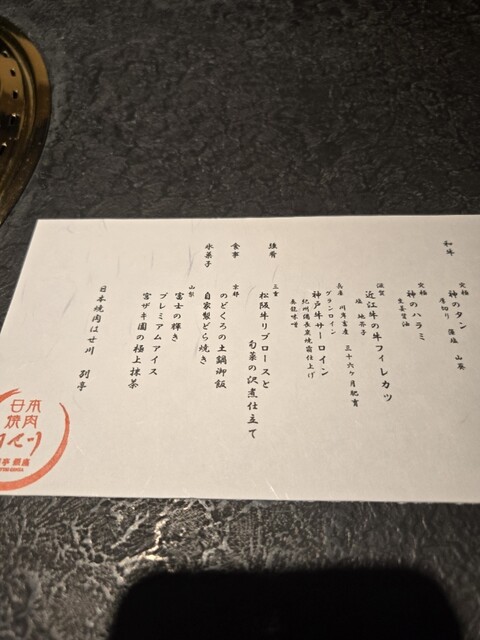 和牛
究極
神のタン
厚切り 藻塩 山葵
究極
神のハラミ
生姜醤油
滋賀
近江牛の牛フィレカツ
塩 地辛子
兵庫 川岸畜産 三十六ヶ月肥育
グランロイン
神戸牛サーロイン
紀州備長炭焼霜仕上げ
強肴
三重
松阪牛リブロースと
旬菜の沢煮仕立て
食事
京都
のどくろの土鍋御飯
氷菓子
自家製どら焼き
山梨
富士の輝き
プレミアムアイス
宮ザキ園の極上抹茶
日本焼肉はせ川 別亭
日本
焼肉
はせ川
別亭 銀座